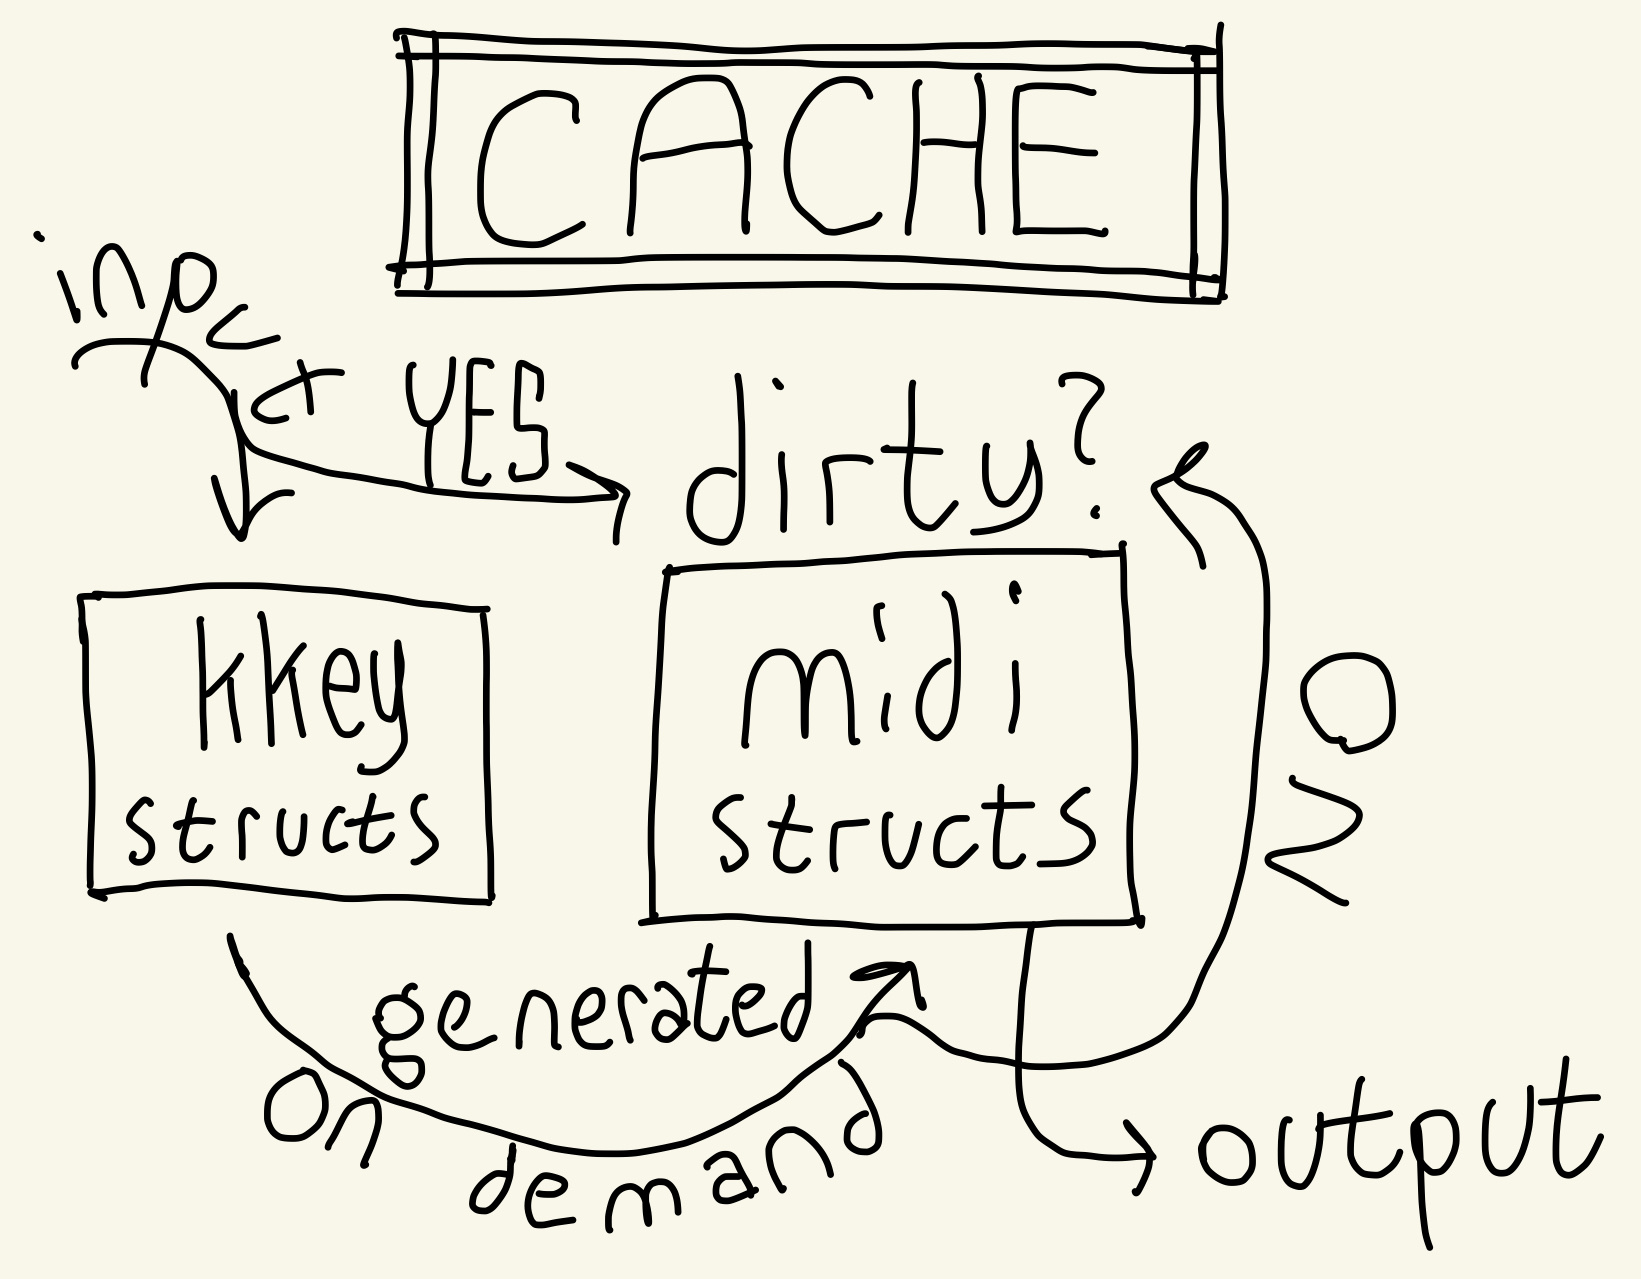 CACHE
input
YES
dirty?
kkey
structs
midi
structs
NO
generated
on demand
output